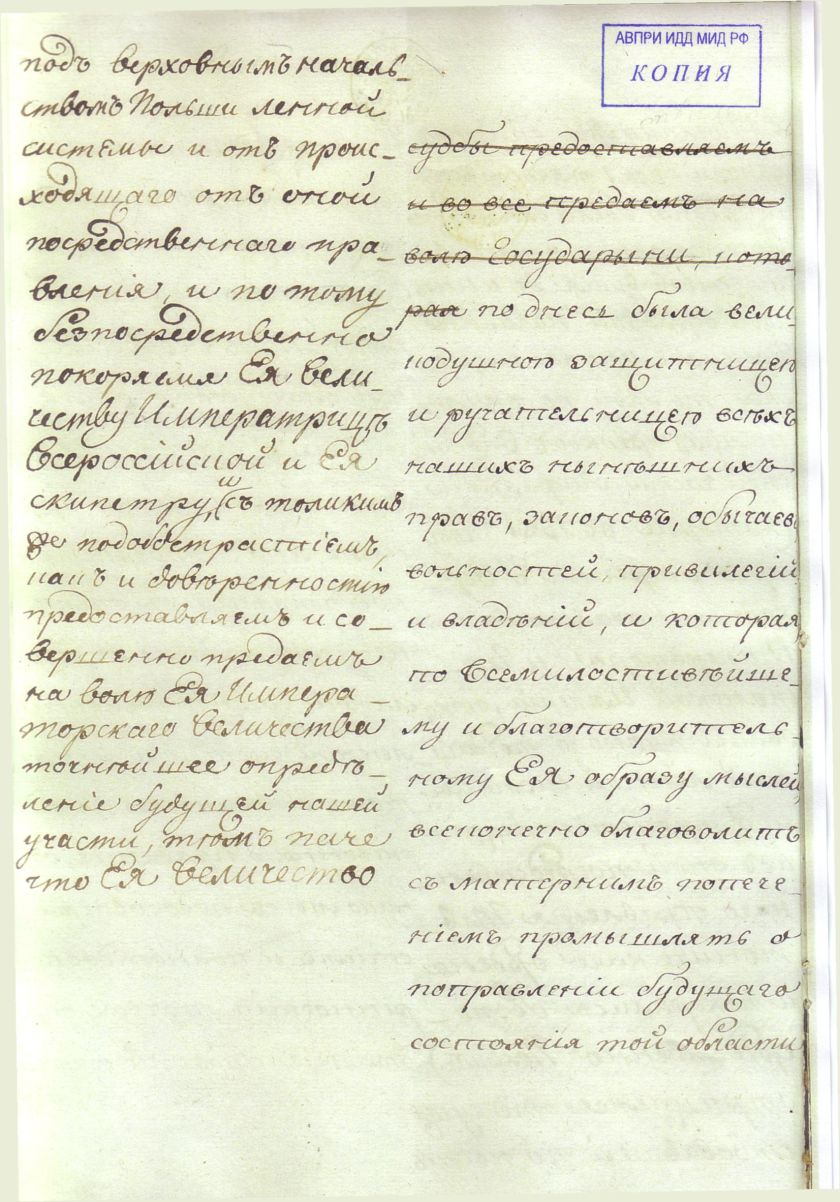 АВПРИ ИДД МИД РФ
КОПИЯ
подъ верховнымъ началь-
ствомъ Польши ленной
системы и отъ проис-
ходящаго отъ оной
посредственнаго пра-
вленія, и по тому
безпосредственно
покоряемся Ея Вели-
честву Императрицѣ
Всероссійской и Ея
скипетру, съ толикимъ
же подобострастіемъ,
какъ и довѣренностію
предоставляемъ и со-
вершенно предаемъ
на волю Ея Импера-
торскаго Величества
точнѣйшее опредѣ-
леніе будущей нашей
участи, тѣмъ паче
что Ея Величество
судбы предоставляемъ
и во все предаемъ на
волю Государыни, кото-
рая по днесь была вели-
кодушною защитницею
и ручательницею всѣхъ
нашихъ нынѣшнихъ
правъ, законовъ, обычаевъ
вольностей, привилегій
и владѣній, и которая,
по Всемилостивѣйше-
му и благотворитель-
ному Ея образу мыслей,
всеконечно благоволитъ
съ матернимъ попече-
ніемъ промышлять о
поправленіи будущаго
состоянія той области